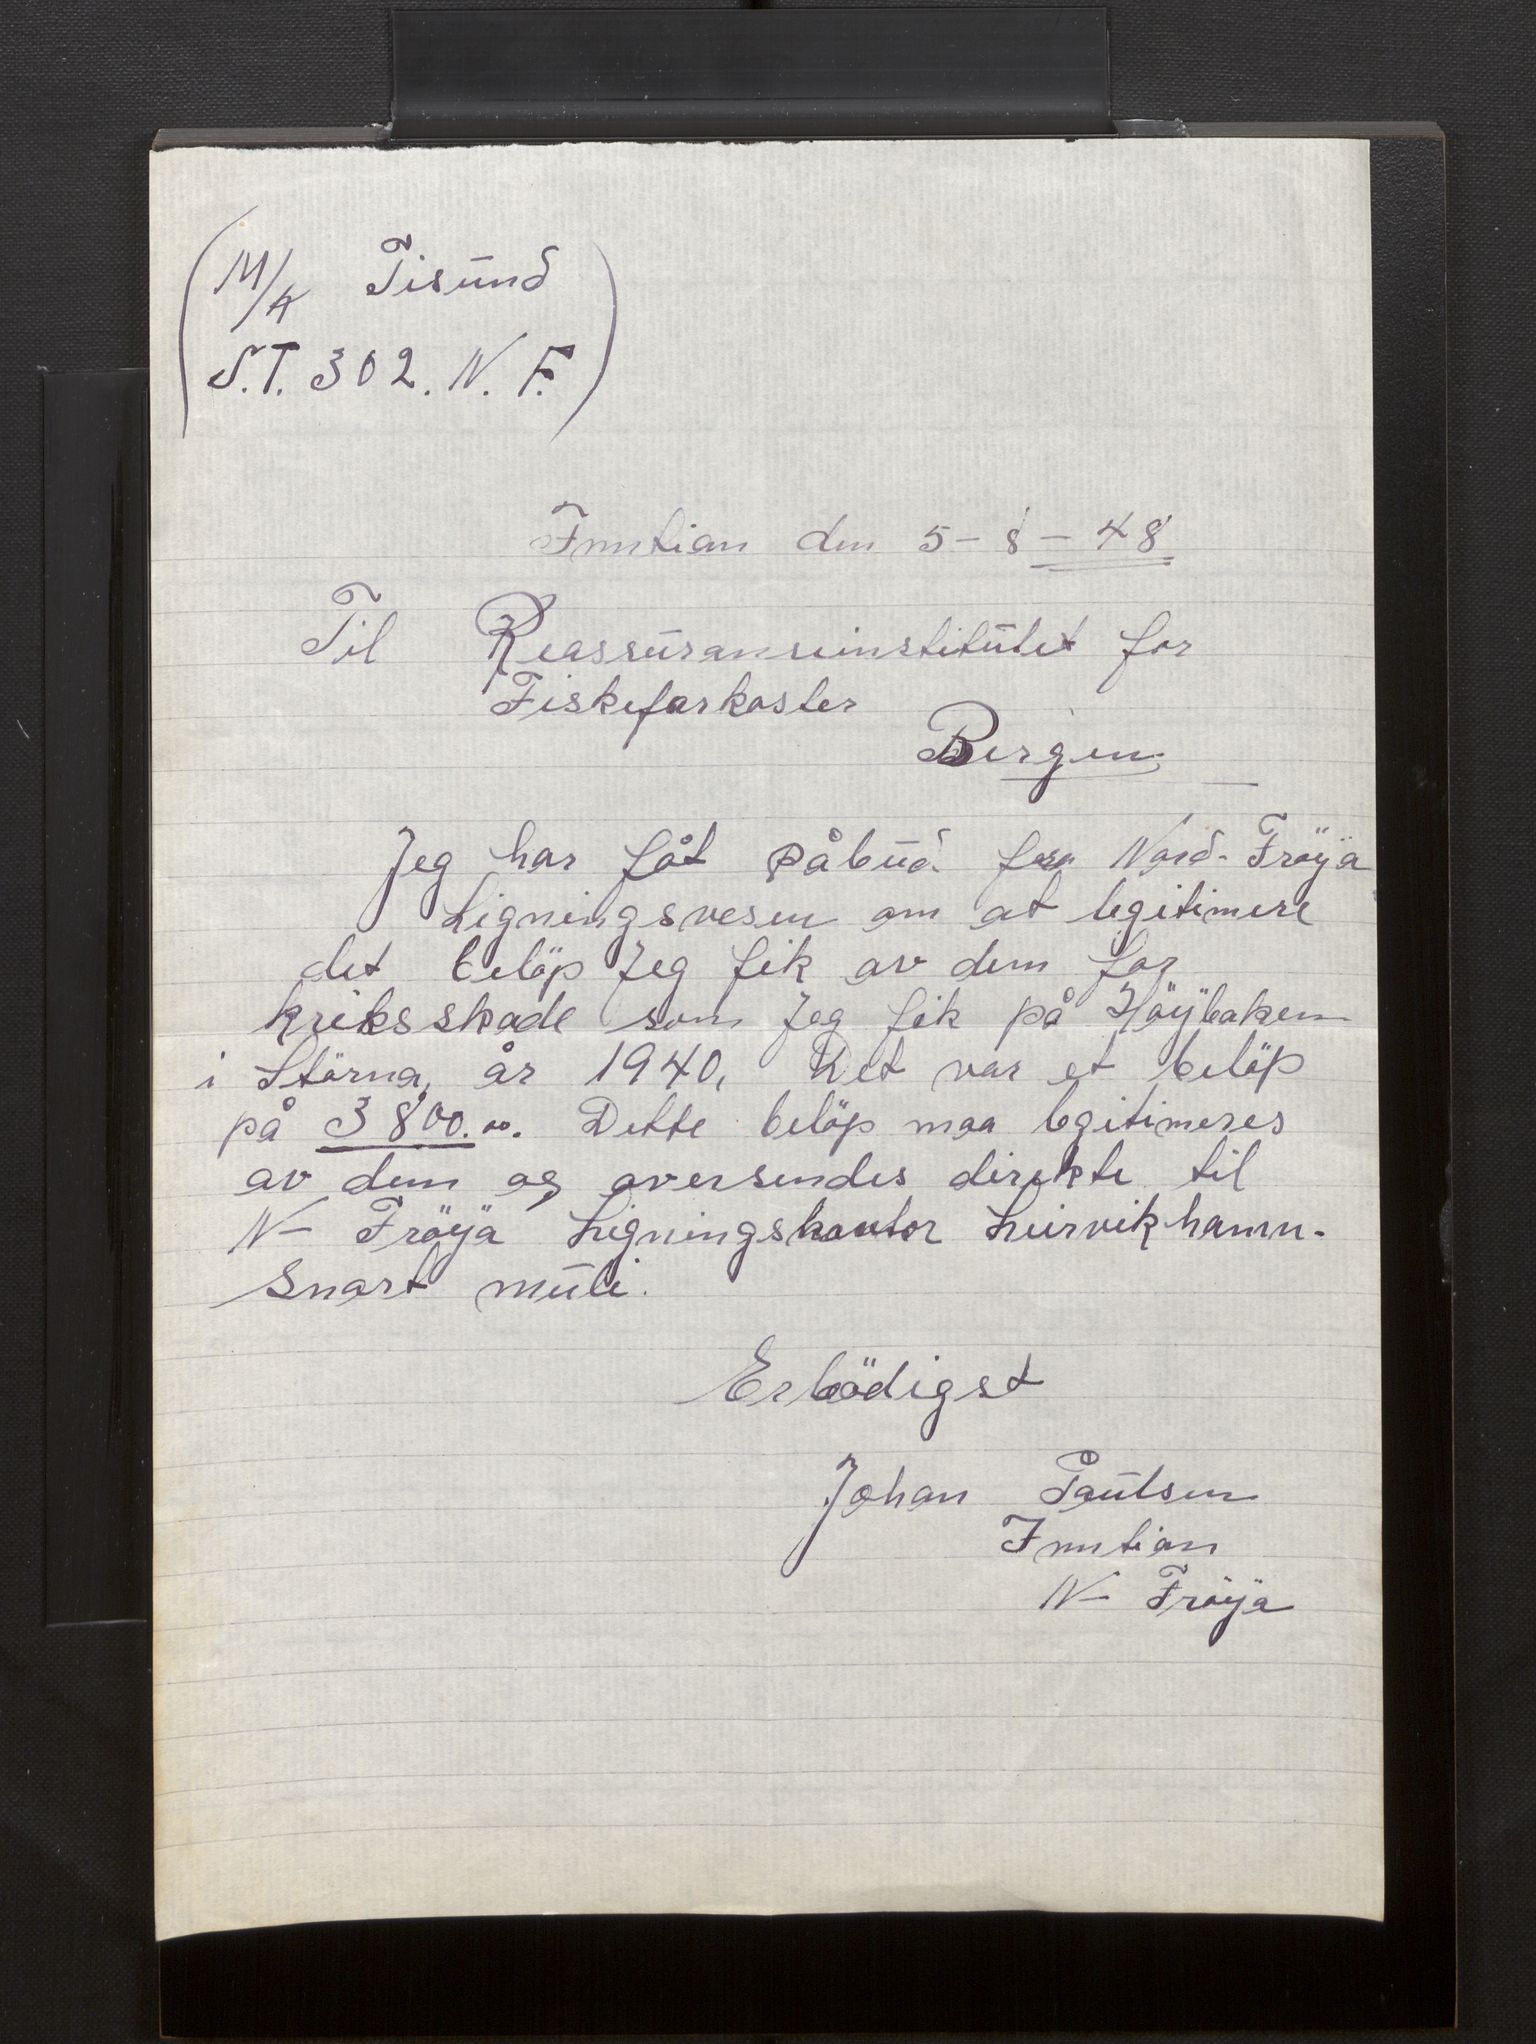 M/K Tisund
S.T. 302. N. F.
Inntian den 5-8-48
Til Reassuranseinstitutet for
Fiskefarkoster
Bergen
Jeg har fåt påbud fra Nord-Fröya
Ligningsvesen om at legitimere
det belöp Jeg fik av dem for
kriksskade som Jeg fik på Höybaken
i Störna, år 1940, Det var et belöp
på 3800.00. Dette belöp maa legitimeres
av dem og oversendes direkte til
N- Fröya Ligningskontor Leirvikhamn.
Snart muli.
Erbödigst
Johan Paulsen
Inntian
N- Fröya